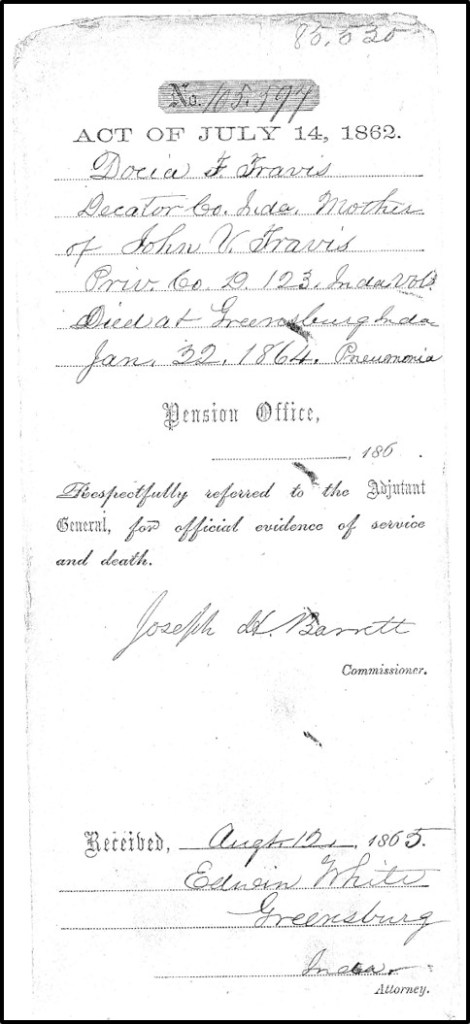 85.530
No. 105.597
ACT OF JULY 14, 1862.
Docia F Travis
Decator Co. Inda. Mother
of John V. Travis
Priv. Co. D. 123. Inda. Vols
Died at Greensburg Inda
Jan. 22. 1864. Pneumonia
Pension Office,
, 186 .
Respectfully referred to the Adjutant
General, for official evidence of service
and death.
Joseph H. Barrett
Commissioner.
Received, Augt. 12, 1865.
Edwin White
Greensburg
Inda.
Attorney.